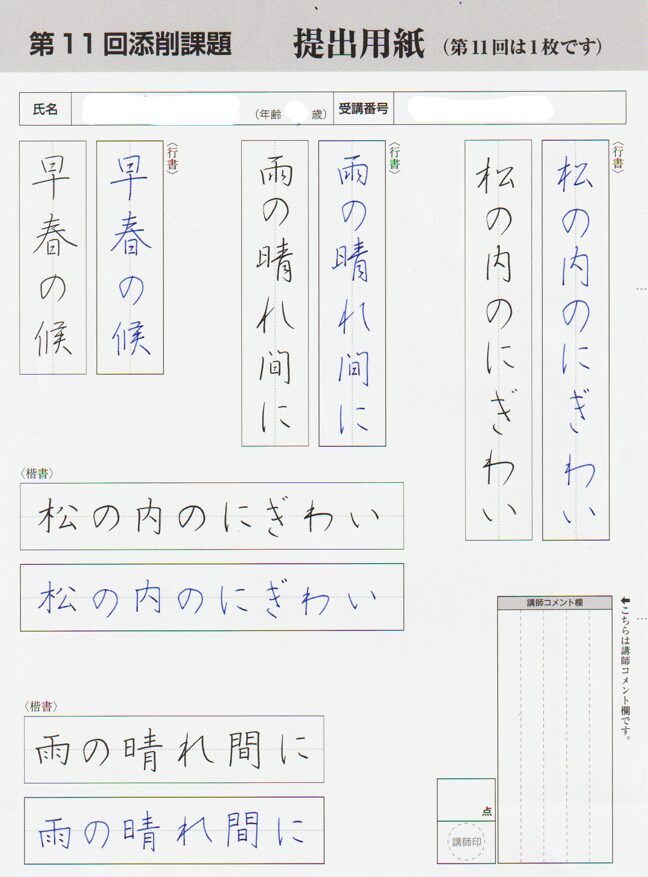 第11回添削課題 提出用紙 (第11回は1枚です)
氏名 (年齢 歳) 受講番号
〈行書〉
松の内のにぎわい
松の内のにぎわい
〈行書〉
雨の晴れ間に
雨の晴れ間に
〈行書〉
早春の候
早春の候
〈楷書〉
松の内のにぎわい
松の内のにぎわい
〈楷書〉
雨の晴れ間に
雨の晴れ間に
⬅こちらは講師コメント欄です。
講師コメント欄
点
講師印